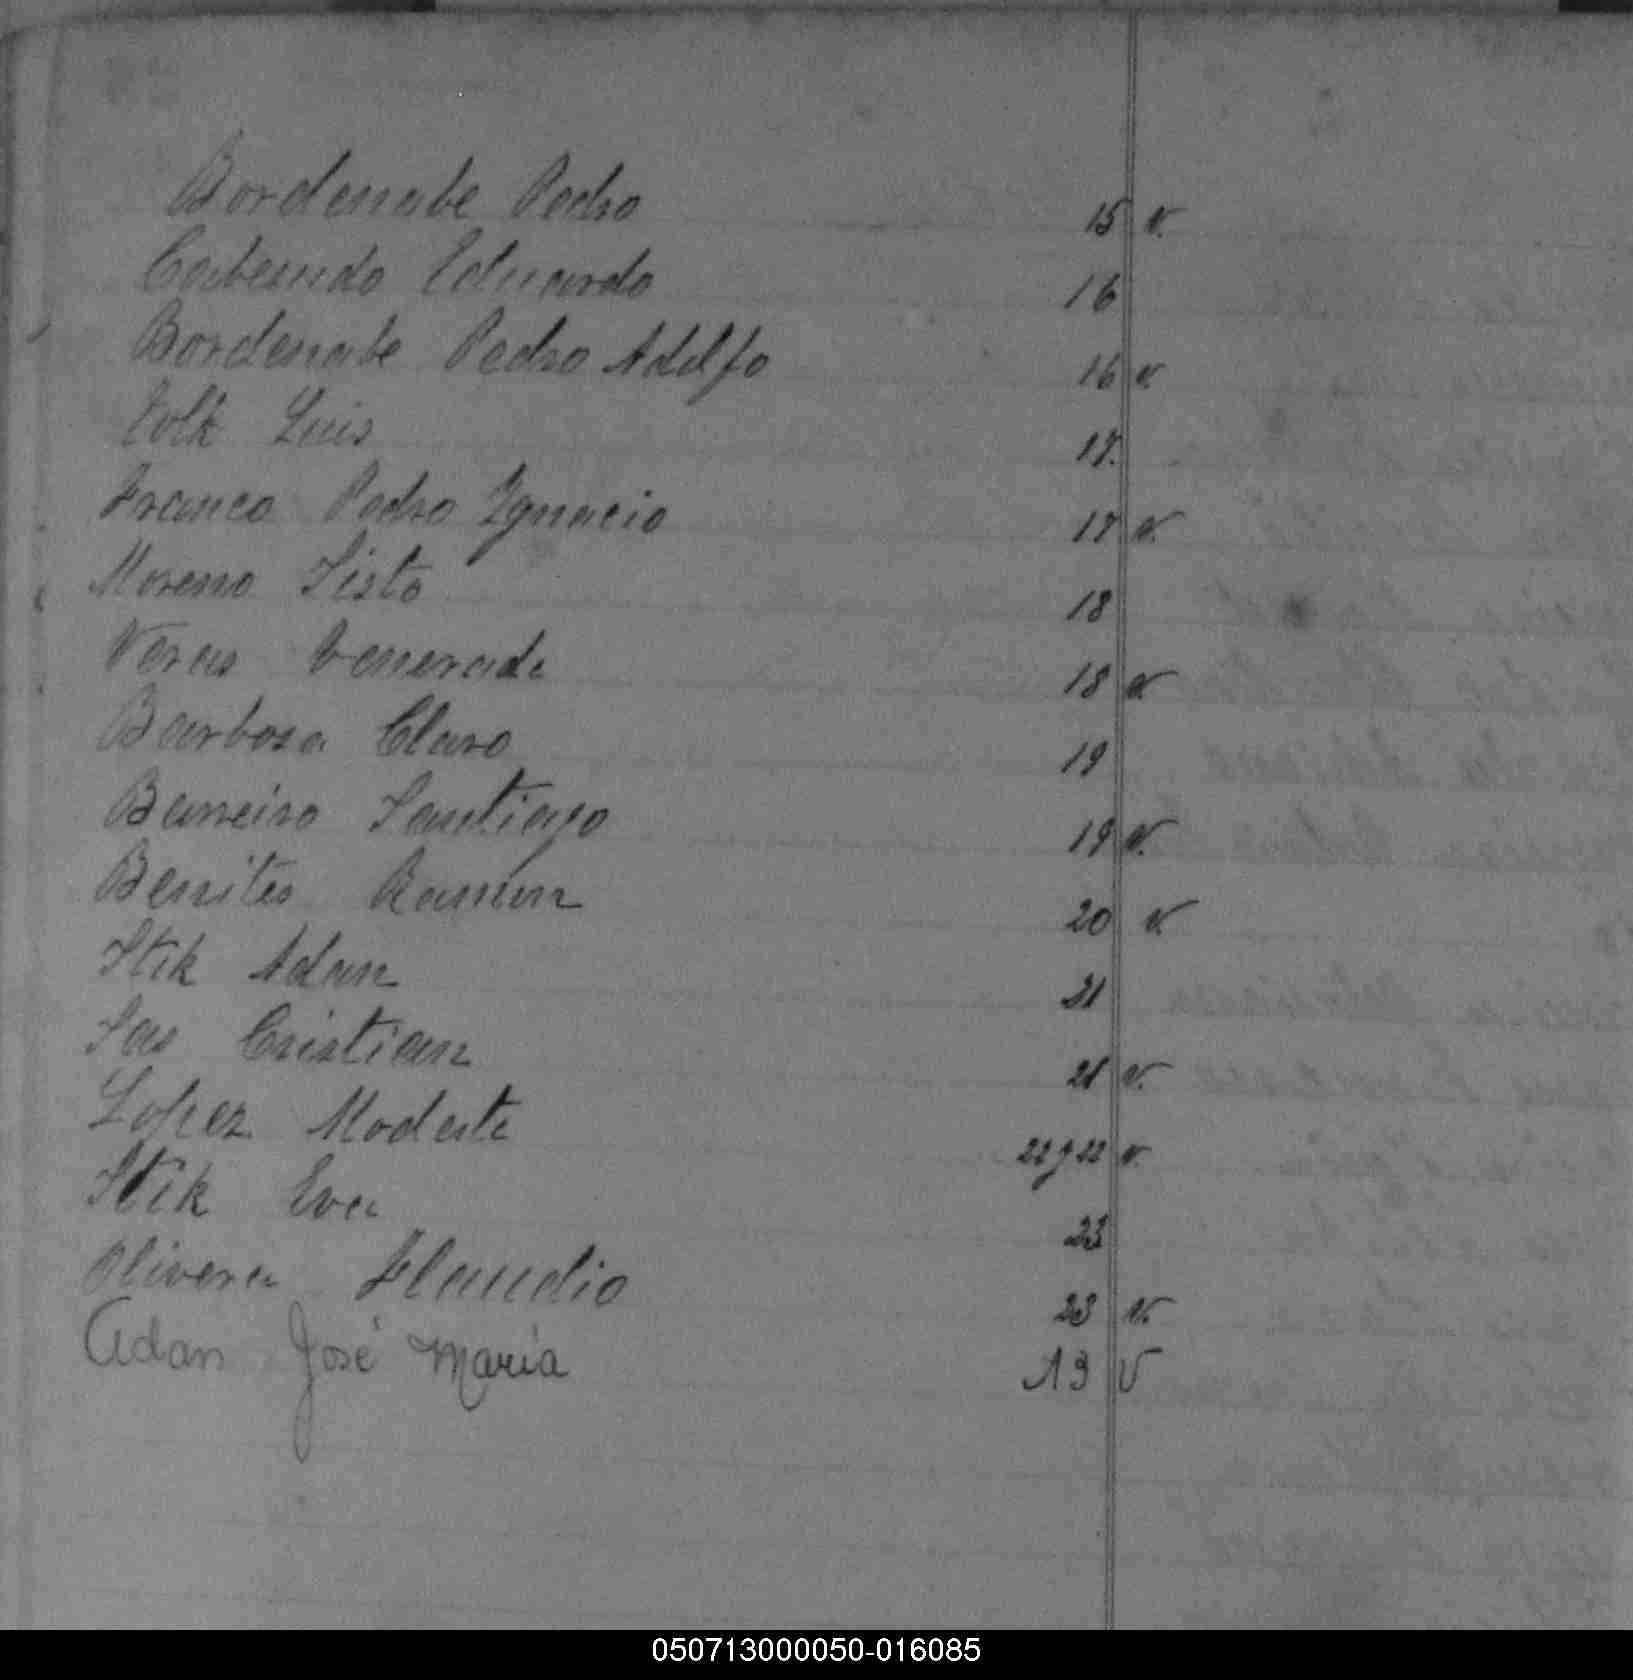 Bordenabe Pedro 15 v.
Cabesudo Eduardo 16
Bordenabe Pedro Adolfo 16 v.
Folk Luis 17.
Franco Pedro Ygnacio 17 v.
Moreno Sisto 18
Veras Venerada 18 v.
Barbosa Claro 19
Barreiro Santiago 19 v.
Benites Ramon 20 v.
Stik Adan 21
Sas Cristian 21 v.
Lopez Modesta 22 y 22 v.
Stik Eva 23
Olivera Flaudio 23 v.
Adan José María 13 V
050713000050-016085